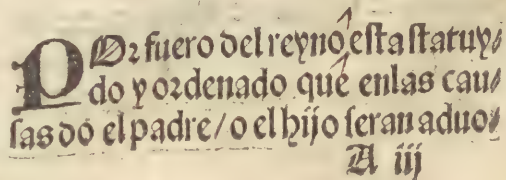 POr fuero del reyno esta statuy-
do y ordenado que enlas cau-
sas dó el padre/o el hijo seran aduo-
A iij